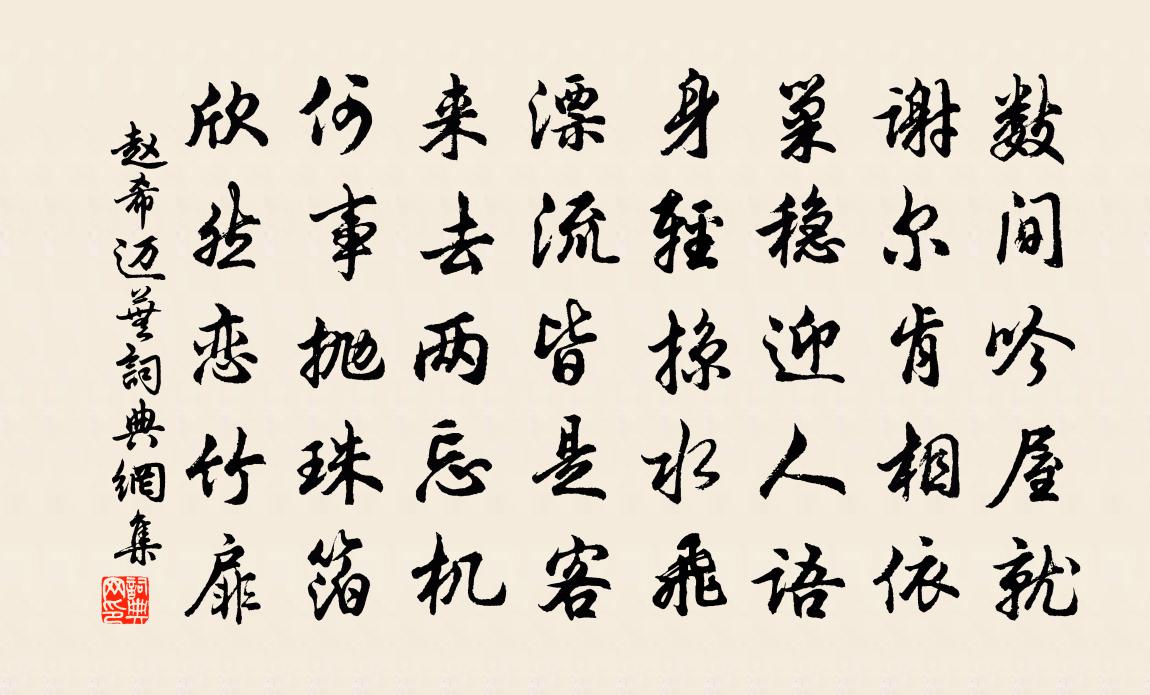 数间吟屋就
谢尔肯相依
巢稳迎人语
身輕掠水飛
漂流皆是客
来去两忘机
何事抛珠箔
欣然恋竹扉
赵希迈藂詞典網集
詞典网印